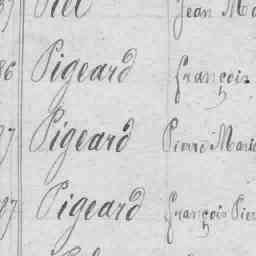 Jean
86 Pigeard François
Pigeard Pierre Marie
Pigeard François Pier